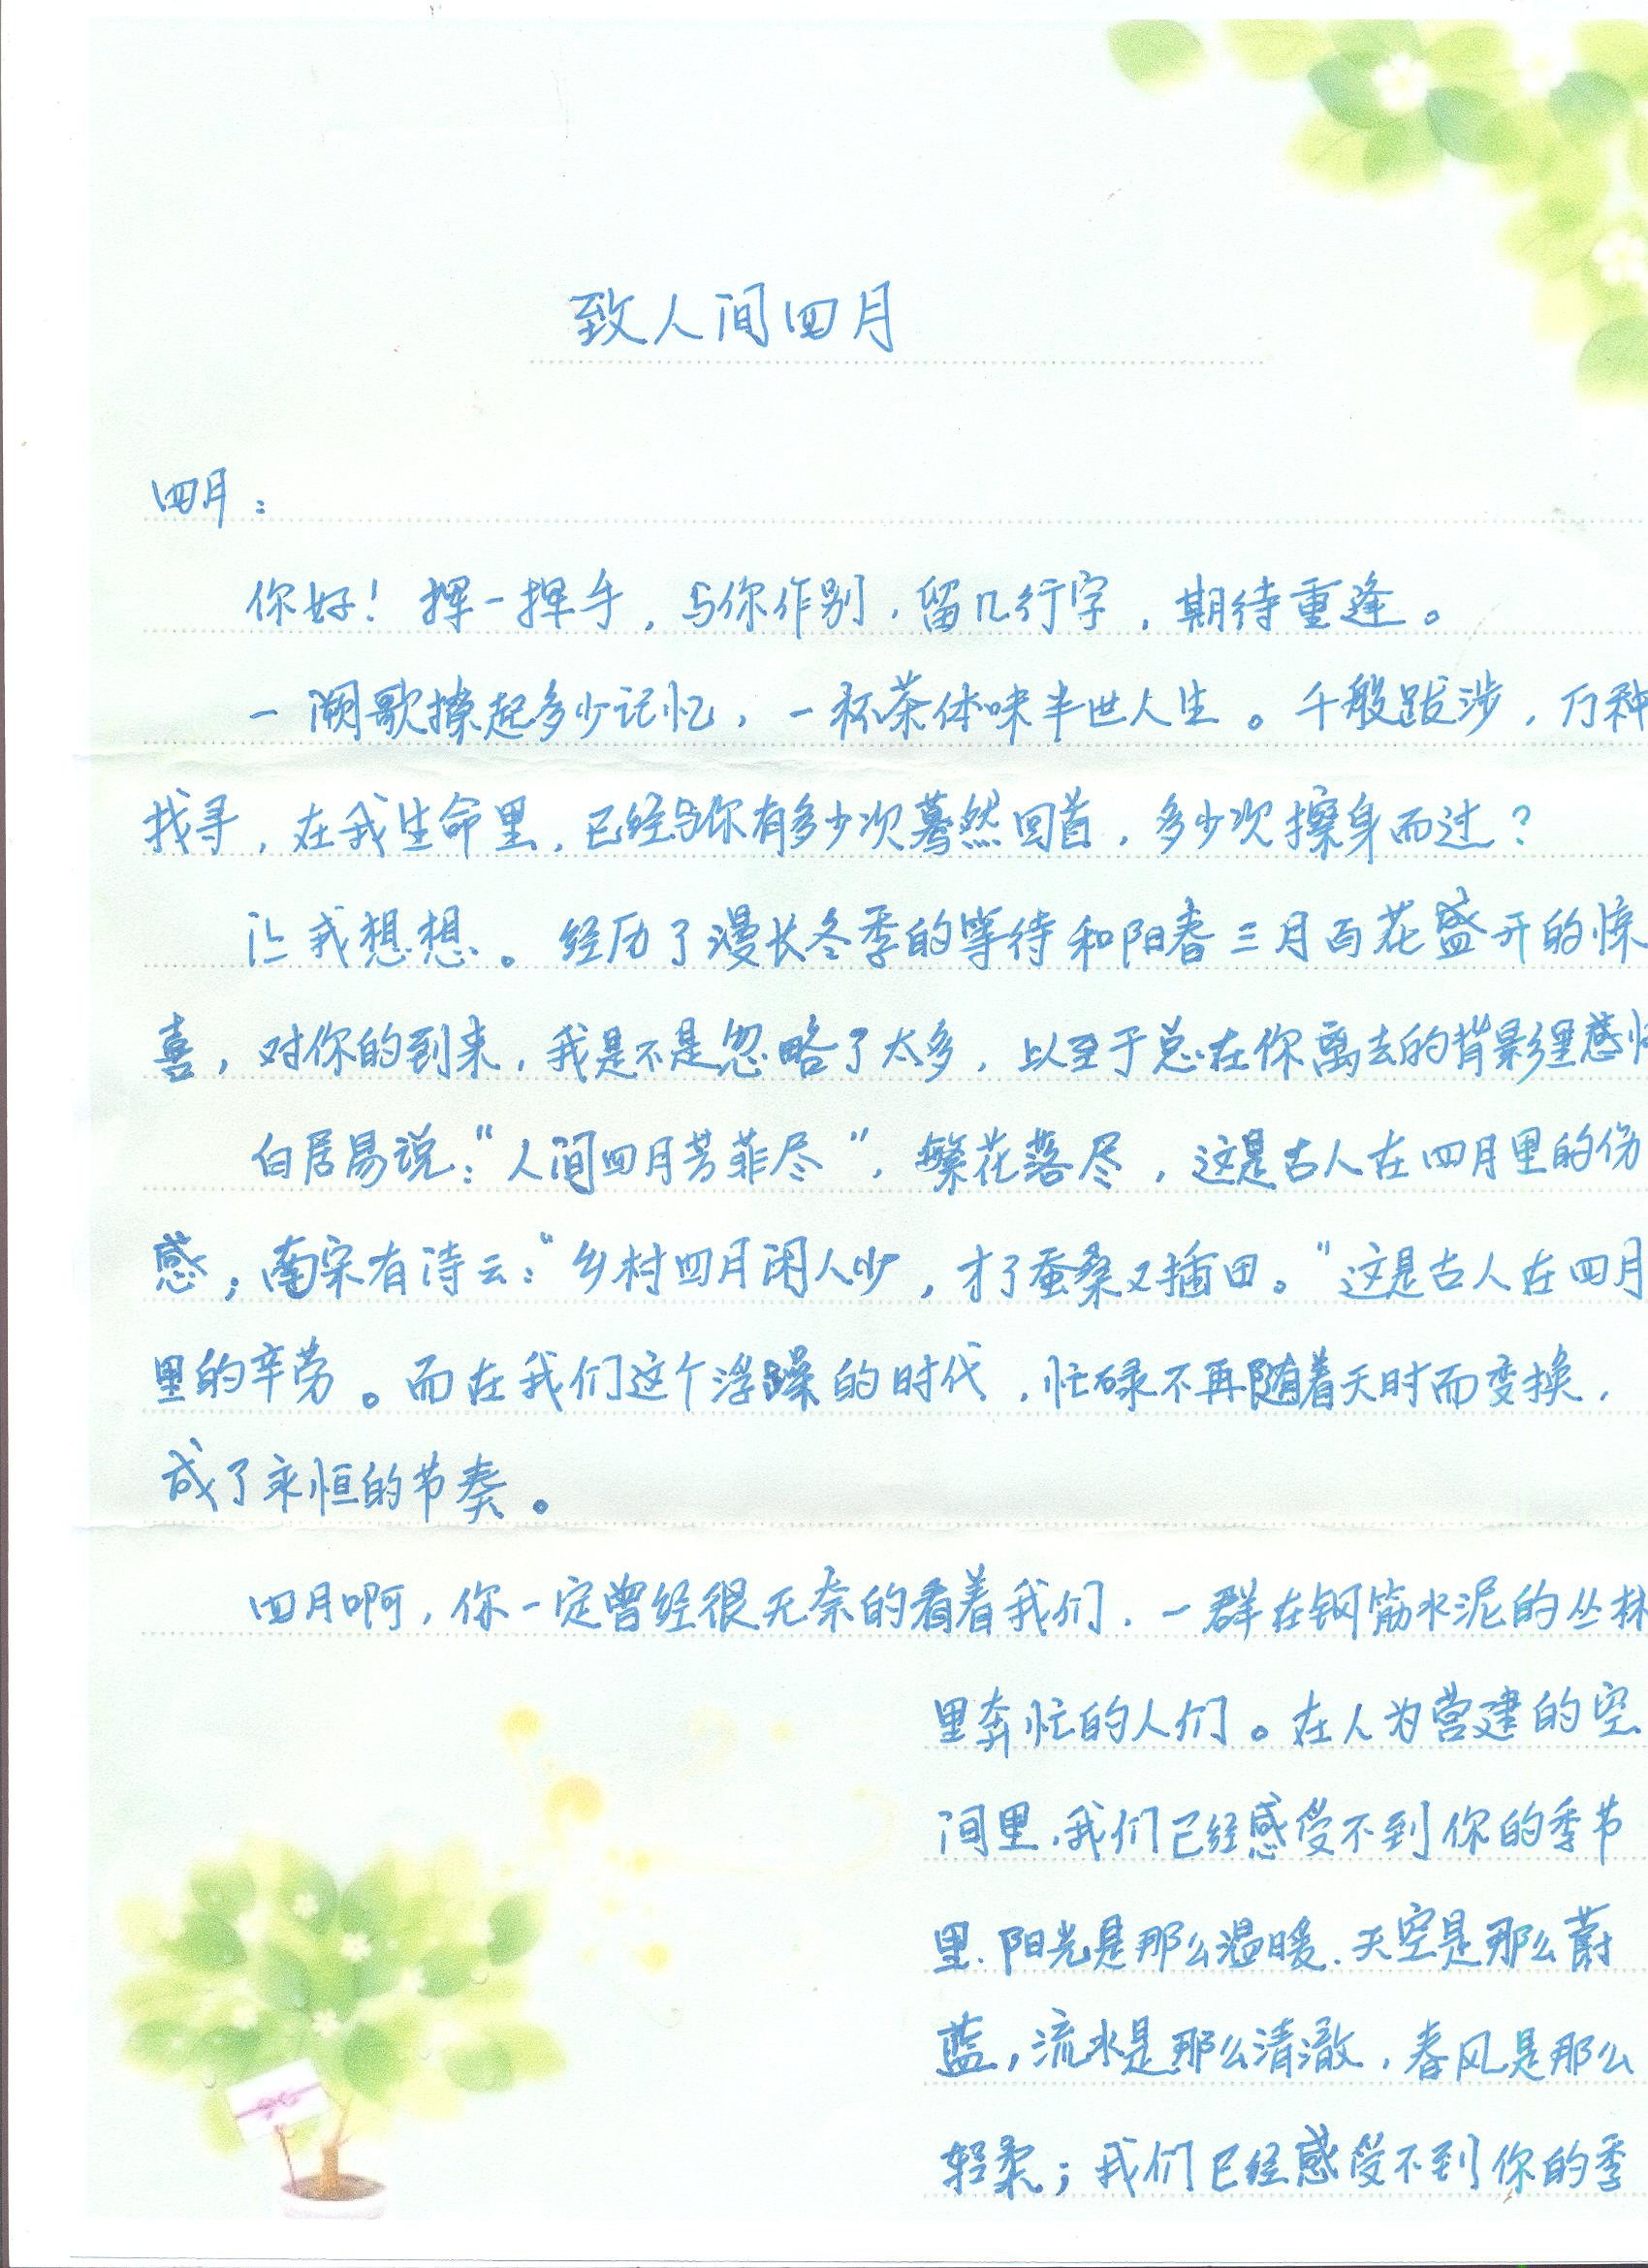 致人间四月
四月：
你好！挥一挥手，与你作别，留几行字，期待重逢。
一阙歌撩起多少记忆，一杯茶体味半世人生。千般跋涉，万种
找寻，在我生命里，已经与你有多少次蓦然回首，多少次擦身而过？
让我想想。经历了漫长冬季的等待和阳春三月百花盛开的惊
喜，对你的到来，我是不是忽略了太多，以至于总在你离去的背影里感
白居易说：“人间四月芳菲尽”，繁花落尽，这是古人在四月里的伤
感；南宋有诗云：“乡村四月闲人少，才了蚕桑又插田。”这是古人在四月
里的辛劳。而在我们这个浮躁的时代，忙碌不再随着天时而变换，
成了永恒的节奏。
四月啊，你一定曾经很无奈的看着我们，一群在钢筋水泥的丛林
里奔忙的人们。在人为营建的空
间里，我们已经感受不到你的季节
里，阳光是那么温暖，天空是那么蔚
蓝，流水是那么清澈，春风是那么
轻柔；我们已经感受不到你的季